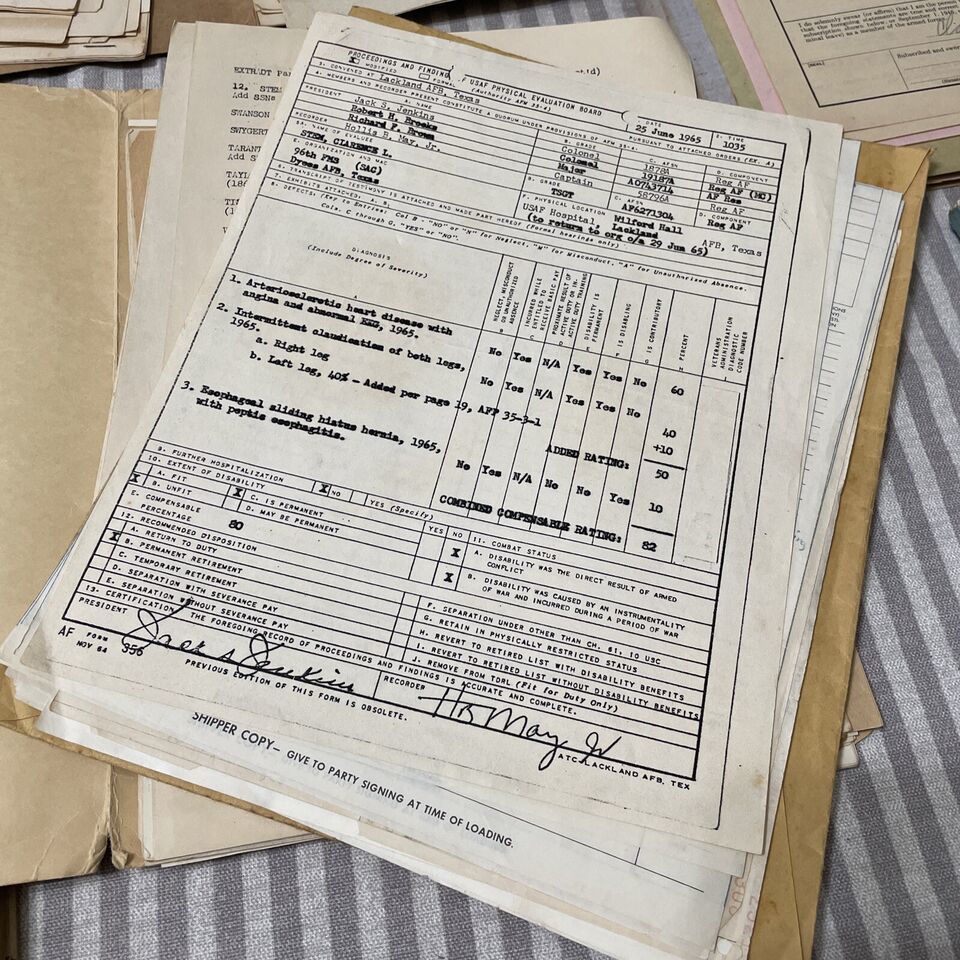 EXTRACT Par
12. STEM
Add SSNs
SWANSON
SWYGERT
TARANT
Add S
TAYL
(186
I do solemnly swear (or affirm) that I am the person
that the foregoing statements are true and correct
subscription shown below, or September 1, 194
minal leave) as a member of the armed forces
(SEAL)
Subscribed and swo
PROCEEDINGS AND FINDINGS OF USAF PHYSICAL EVALUATION BOARD
X MODIFIED FORMAL (Authority AFM 35-4)
DATE
25 June 1965
2. TIME
1035
1. CONVENED AT Lackland AFB, Texas
3. MEMBERS AND RECORDER PRESENT CONSTITUTE A QUORUM UNDER PROVISIONS OF AFM 35-4, PURSUANT TO ATTACHED ORDERS (EX. A)
A. NAME B. GRADE C. AFSN D. COMPONENT
PRESIDENT Jack S. Jenkins Colonel 1878A Reg AF
Robert H. Brooks Colonel 19187A Reg AF (MC)
Richard F. Brown Major AO743714 AF Res
RECORDER Hollis B. May, Jr. Captain 58796A Reg AF
5A. NAME OF EVALUEE B. GRADE C. AFSN D. COMPONENT
STEM, CLARENCE L. TSGT AF6271304 Reg AF
E. ORGANIZATION AND MAC F. PHYSICAL LOCATION
96th FMS (SAC) USAF Hospital, Wilford Hall
Dyess AFB, Texas (to return to org o/a 29 Jun 65) Lackland AFB, Texas
6. TRANSCRIPT OF TESTIMONY IS ATTACHED AND MADE PART HEREOF (Formal hearings only)
7. EXHIBITS ATTACHED: A, B,
8. DEFECTS: (Key to Entries: Col B - "NO" or "N" for Neglect, "M" for Misconduct, "A" for Unauthorized Absence.
Cols. C through G, "YES" or "NO".
DIAGNOSIS
(Include Degree of Severity)
A
NEGLECT, MISCONDUCT OR UNAUTHORIZED ABSENCE B
INCURRED WHILE ENTITLED TO RECEIVE BASIC PAY C
PROXIMATE RESULT OF ACTIVE DUTY OR INACTIVE DUTY TRAINING D
DISABILITY IS PERMANENT E
IS DISABLING F
IS CONTRIBUTORY G
PERCENT H
VETERANS ADMINISTRATION DIAGNOSTIC CODE NUMBER I
1. Arteriosclerotic heart disease with
angina and abnormal EKG, 1965. No Yes N/A Yes Yes No 60
2. Intermittent claudication of both legs,
1965. No Yes N/A Yes Yes No
a. Right leg 40
b. Left leg, 40% - Added per page 19, AFP 35-3-1 +10
ADDED RATING: 50
3. Esophageal sliding hiatus hernia, 1965,
with peptic esophagitis. No Yes N/A No No Yes 10
COMBINED COMPENSABLE RATING: 82
9. FURTHER HOSPITALIZATION X NO YES (Specify)
10. EXTENT OF DISABILITY
A. FIT X C. IS PERMANENT
X B. UNFIT D. MAY BE PERMANENT
E. COMPENSABLE
PERCENTAGE 80
YES NO 11. COMBAT STATUS
X A. DISABILITY WAS THE DIRECT RESULT OF ARMED
CONFLICT
X B. DISABILITY WAS CAUSED BY AN INSTRUMENTALITY
OF WAR AND INCURRED DURING A PERIOD OF WAR
12. RECOMMENDED DISPOSITION
A. RETURN TO DUTY
X B. PERMANENT RETIREMENT
C. TEMPORARY RETIREMENT
D. SEPARATION WITH SEVERANCE PAY
E. SEPARATION WITHOUT SEVERANCE PAY
F. SEPARATION UNDER OTHER THAN CH. 61, 10 USC
G. RETAIN IN PHYSICALLY RESTRICTED STATUS
H. REVERT TO RETIRED LIST WITH DISABILITY BENEFITS
I. REVERT TO RETIRED LIST WITHOUT DISABILITY BENEFITS
J. REMOVE FROM TDRL (Fit for Duty Only)
13. CERTIFICATION THE FOREGOING RECORD OF PROCEEDINGS AND FINDINGS IS ACCURATE AND COMPLETE.
PRESIDENT Jack S Jenkins RECORDER HB May Jr
AF FORM NOV 64 356 PREVIOUS EDITION OF THIS FORM IS OBSOLETE.
ATC, LACKLAND AFB, TEX
SHIPPER COPY— GIVE TO PARTY SIGNING AT TIME OF LOADING.